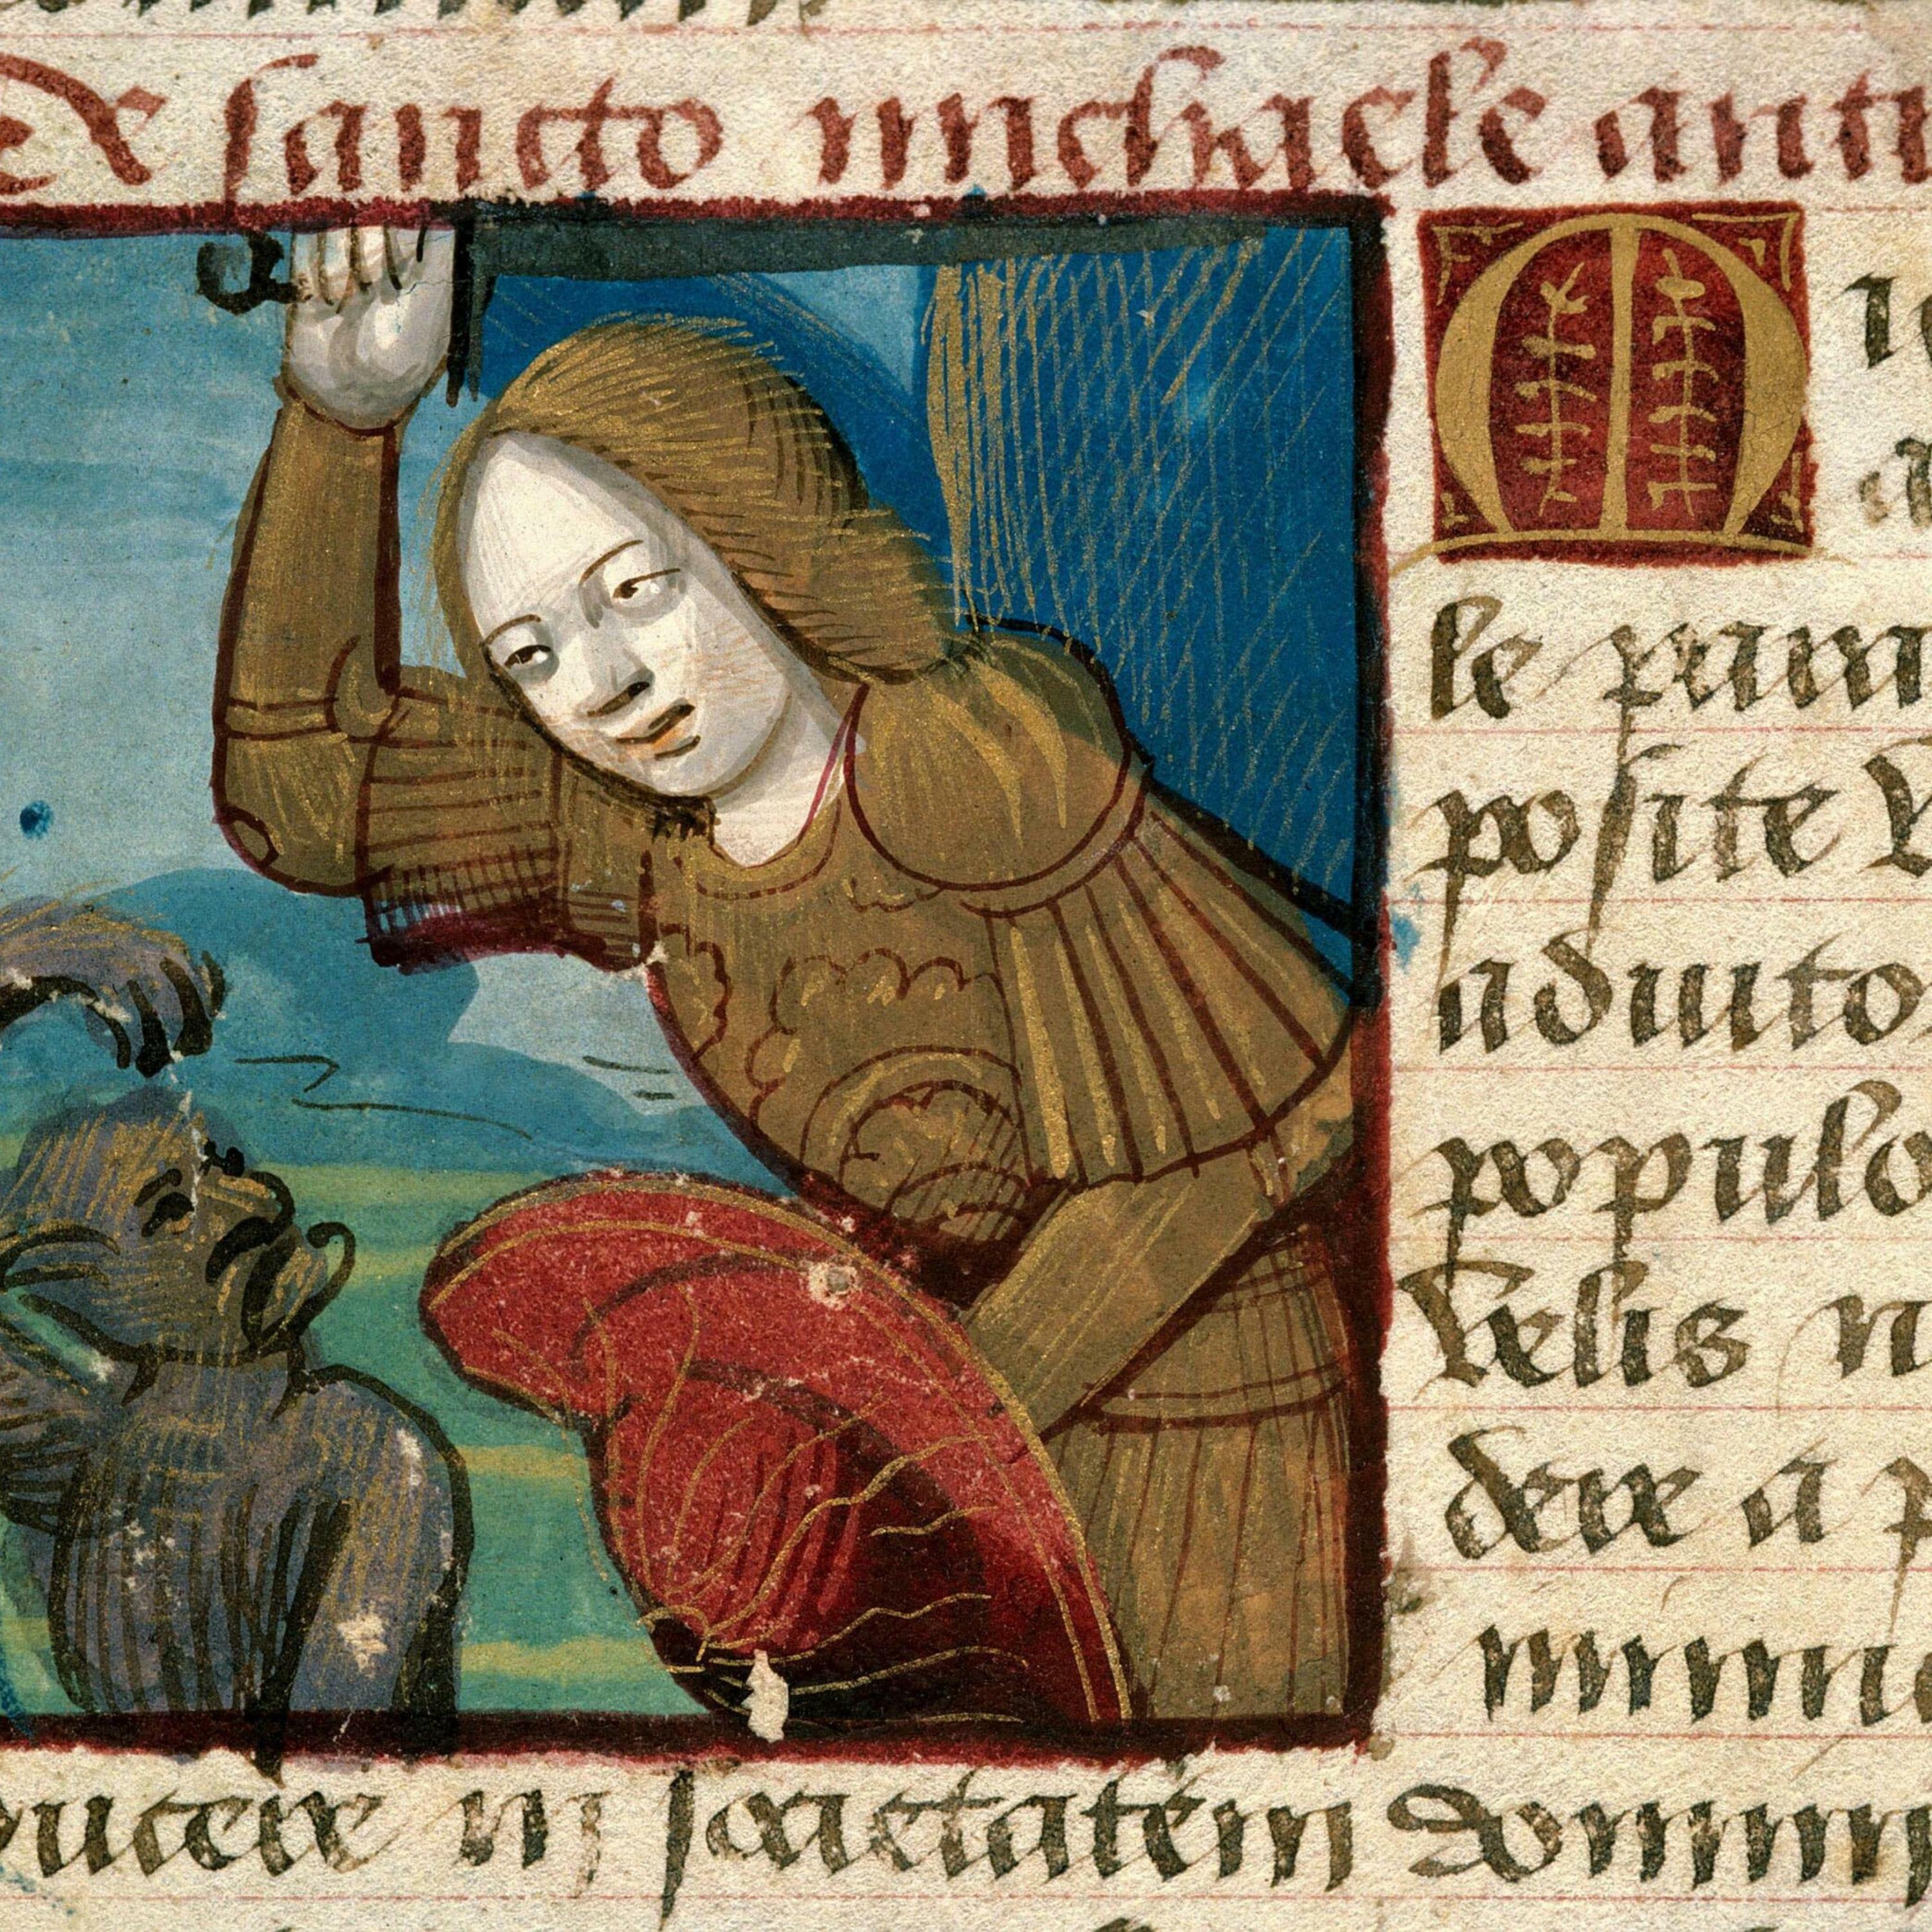 De sancto michaele anti
M
le param
posite
adiuto
populo
velis n
dere a p
ducere in societatem domini